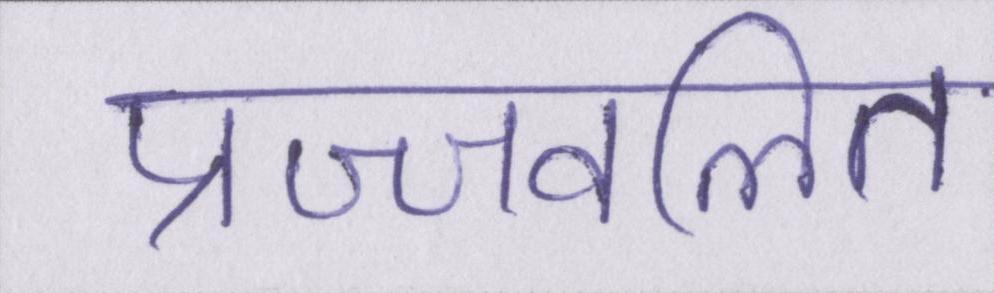 प्रज्जवलित